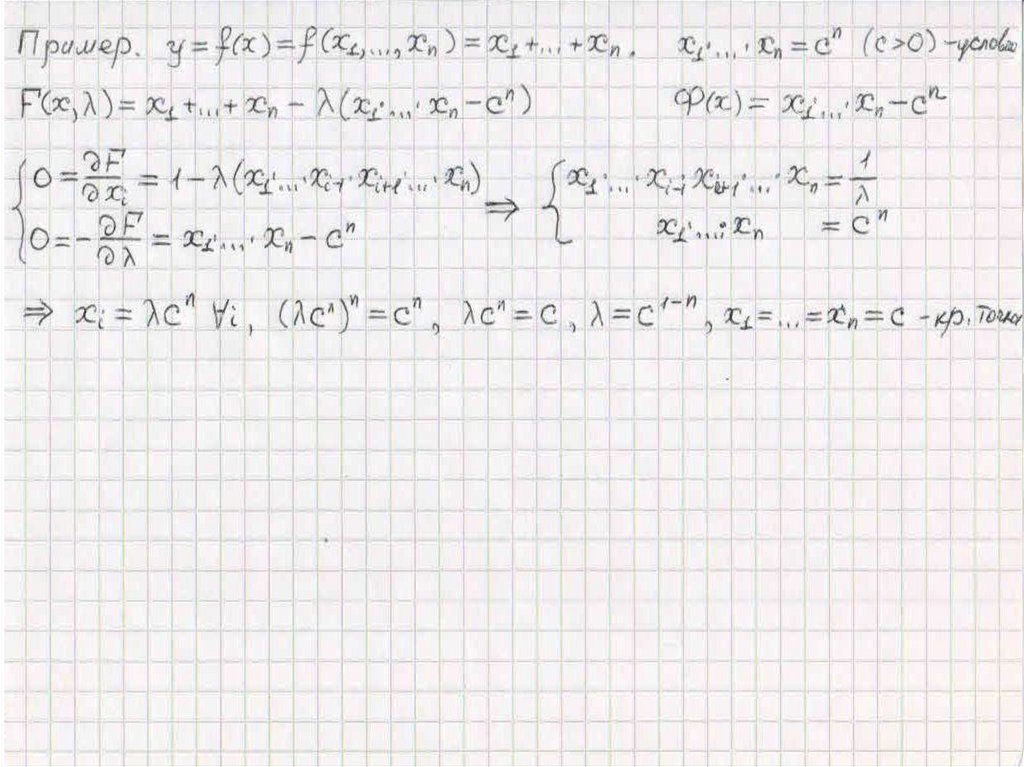 Пример. y = f(x) = f(x₁,...,xₙ) = x₁+...+xₙ. x₁·...·xₙ = cⁿ (c>0) - условие
F(x,λ) = x₁+...+xₙ - λ(x₁·...·xₙ - cⁿ) Ф(x) = x₁·...·xₙ - cⁿ
{ 0 = ∂F/∂xᵢ = 1 - λ(x₁·...·xᵢ₋₁·xᵢ₊₁·...·xₙ) ⇒ { x₁·...·xᵢ₋₁ xᵢ₊₁·...·xₙ = 1/λ
0 = -∂F/∂λ = x₁·...·xₙ - cⁿ x₁·...·xₙ = cⁿ
⇒ xᵢ = λcⁿ ∀i, (λcⁿ)ⁿ = cⁿ, λcⁿ = c, λ = c¹⁻ⁿ, x₁=...=xₙ=c - кр. точка